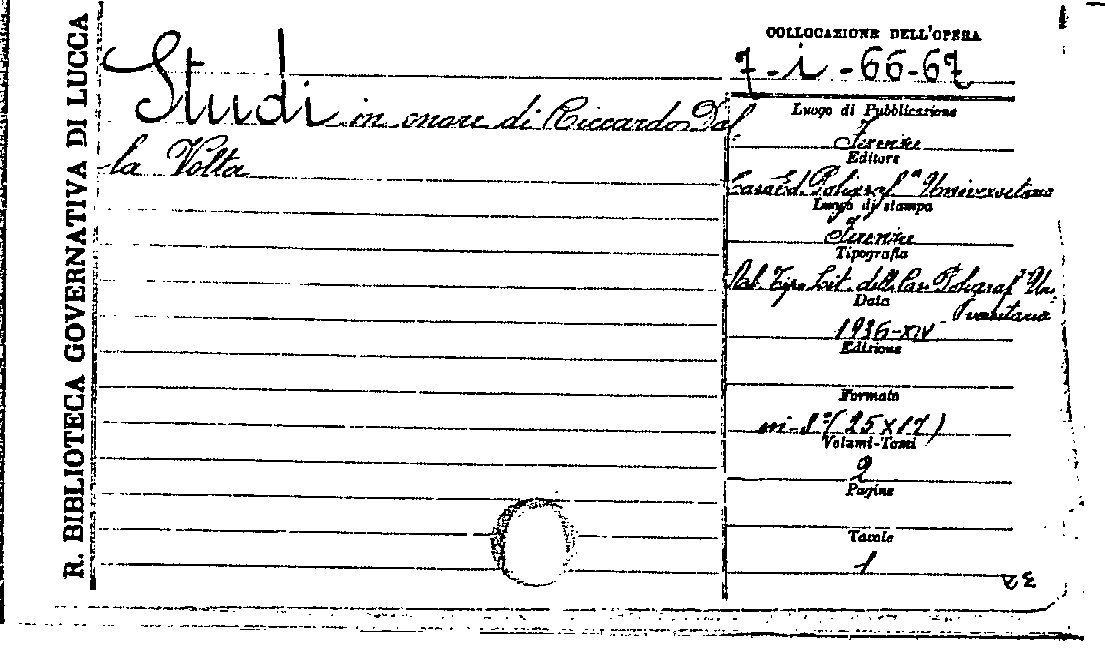 R. BIBLIOTECA GOVERNATIVA DI LUCCA
Studi in onore di Riccardo Dal
la Volta
COLLOCAZIONE DELL'OPERA
7-i-66-67
Luogo di Pubblicazione
Firenze
Editore
Casa Ed. Poligraf.ª Universitaria
Luogo di stampa
Firenze
Tipografia
Stab. Tipo Lit. della Casa Poligraf. Uni
versitaria
Data
1936-XIV
Edizione
Formato
in-8° (25x17)
Volumi-Tomi
2
Pagine
Tavole
1